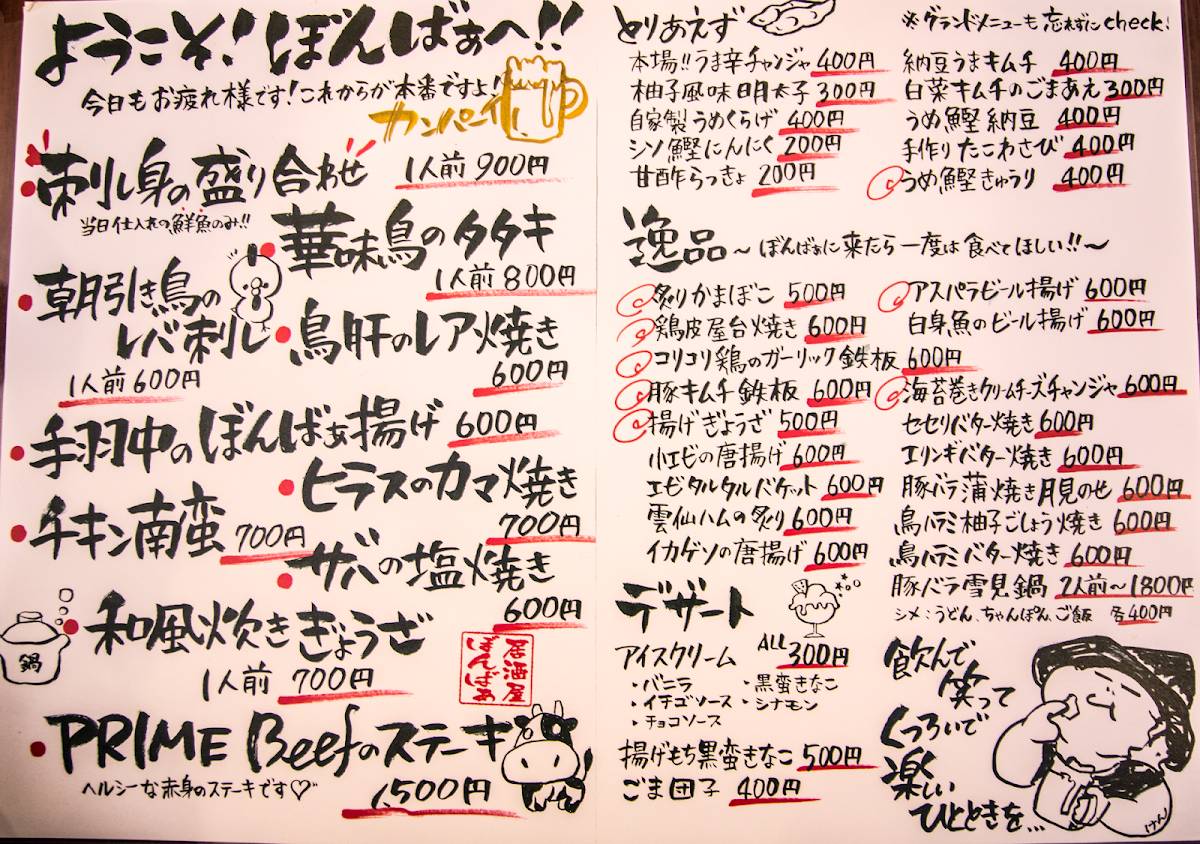 ようこそ!ぼんばぁへ!!
今日もお疲れ様です!これからが本番ですよ!
カンパーイ
刺し身の盛り合わせ 1人前900円
当日仕入れの鮮魚のみ!!
華味鳥のタタキ
1人前800円
朝引き鳥の
レバ刺し
1人前600円
鳥肝のレア焼き
600円
手羽中のぼんばぁ揚げ 600円
ヒラスのカマ焼き
700円
チキン南蛮 700円
サバの塩焼き
600円
鍋
和風炊きぎょうざ
1人前 700円
居酒屋
ぼんばぁ
PRIME Beefのステーキ
ヘルシーな赤身のステーキです♡
1,500円
とりあえず
本場!!うま辛チャンジャ400円
柚子風味明太子300円
自家製うめくらげ 400円
シソ鰹にんにく200円
甘酢らっきょ 200円
※グランドメニューも忘れずにcheck!
納豆うまキムチ 400円
白菜キムチのごまあえ300円
うめ鰹納豆 400円
手作りたこわさび400円
うめ鰹きゅうり 400円
逸品~ぼんばぁに来たら一度は食べてほしい!!~
炙りかまぼこ 500円
鶏皮屋台焼き 600円
コリコリ鶏のガーリック鉄板600円
豚キムチ鉄板 600円
揚げぎょうざ 500円
小エビの唐揚げ600円
エビタルタルバケット 600円
雲仙ハムの炙り600円
イカゲソの唐揚げ600円
アスパラビール揚げ600円
白身魚のビール揚げ600円
海苔巻きクリームチーズチャンジャ600円
セセリバター焼き600円
エリンギバター焼き 600円
豚バラ蒲焼き月見のせ 600円
鳥ハラミ柚子ごしょう焼き 600円
鳥ハラミバター焼き600円
豚バラ雪見鍋 2人前~1800円
シメ:うどん、ちゃんぽん、ご飯 各400円
デザート
アイスクリーム ALL300円
・バニラ ・黒蛮きなこ
・イチゴソース ・シナモン
・チョコソース
揚げもち黒蛮きなこ 500円
ごま団子 400円
飲んで
笑って
くつろいで
楽しい
ひとときを…
けん